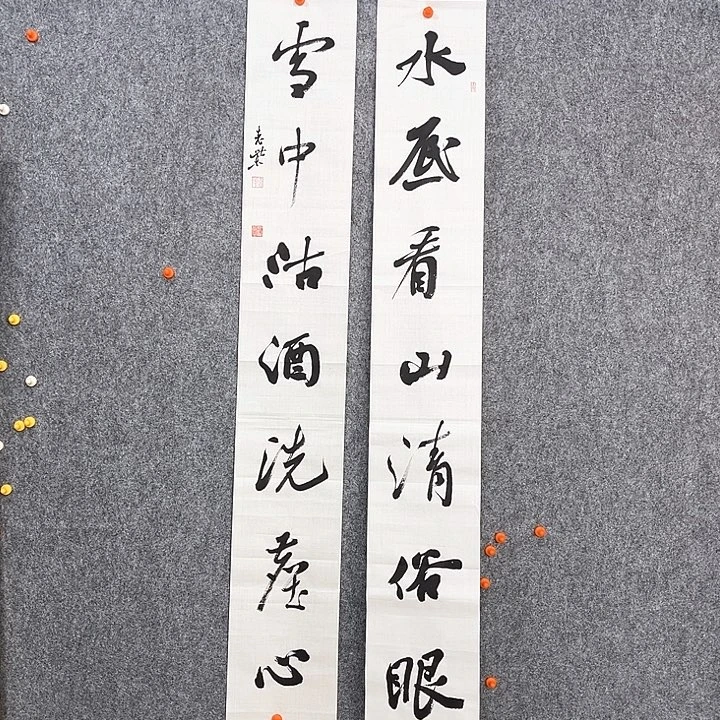 水底看山清俗眼
雪中沽酒洗塵心